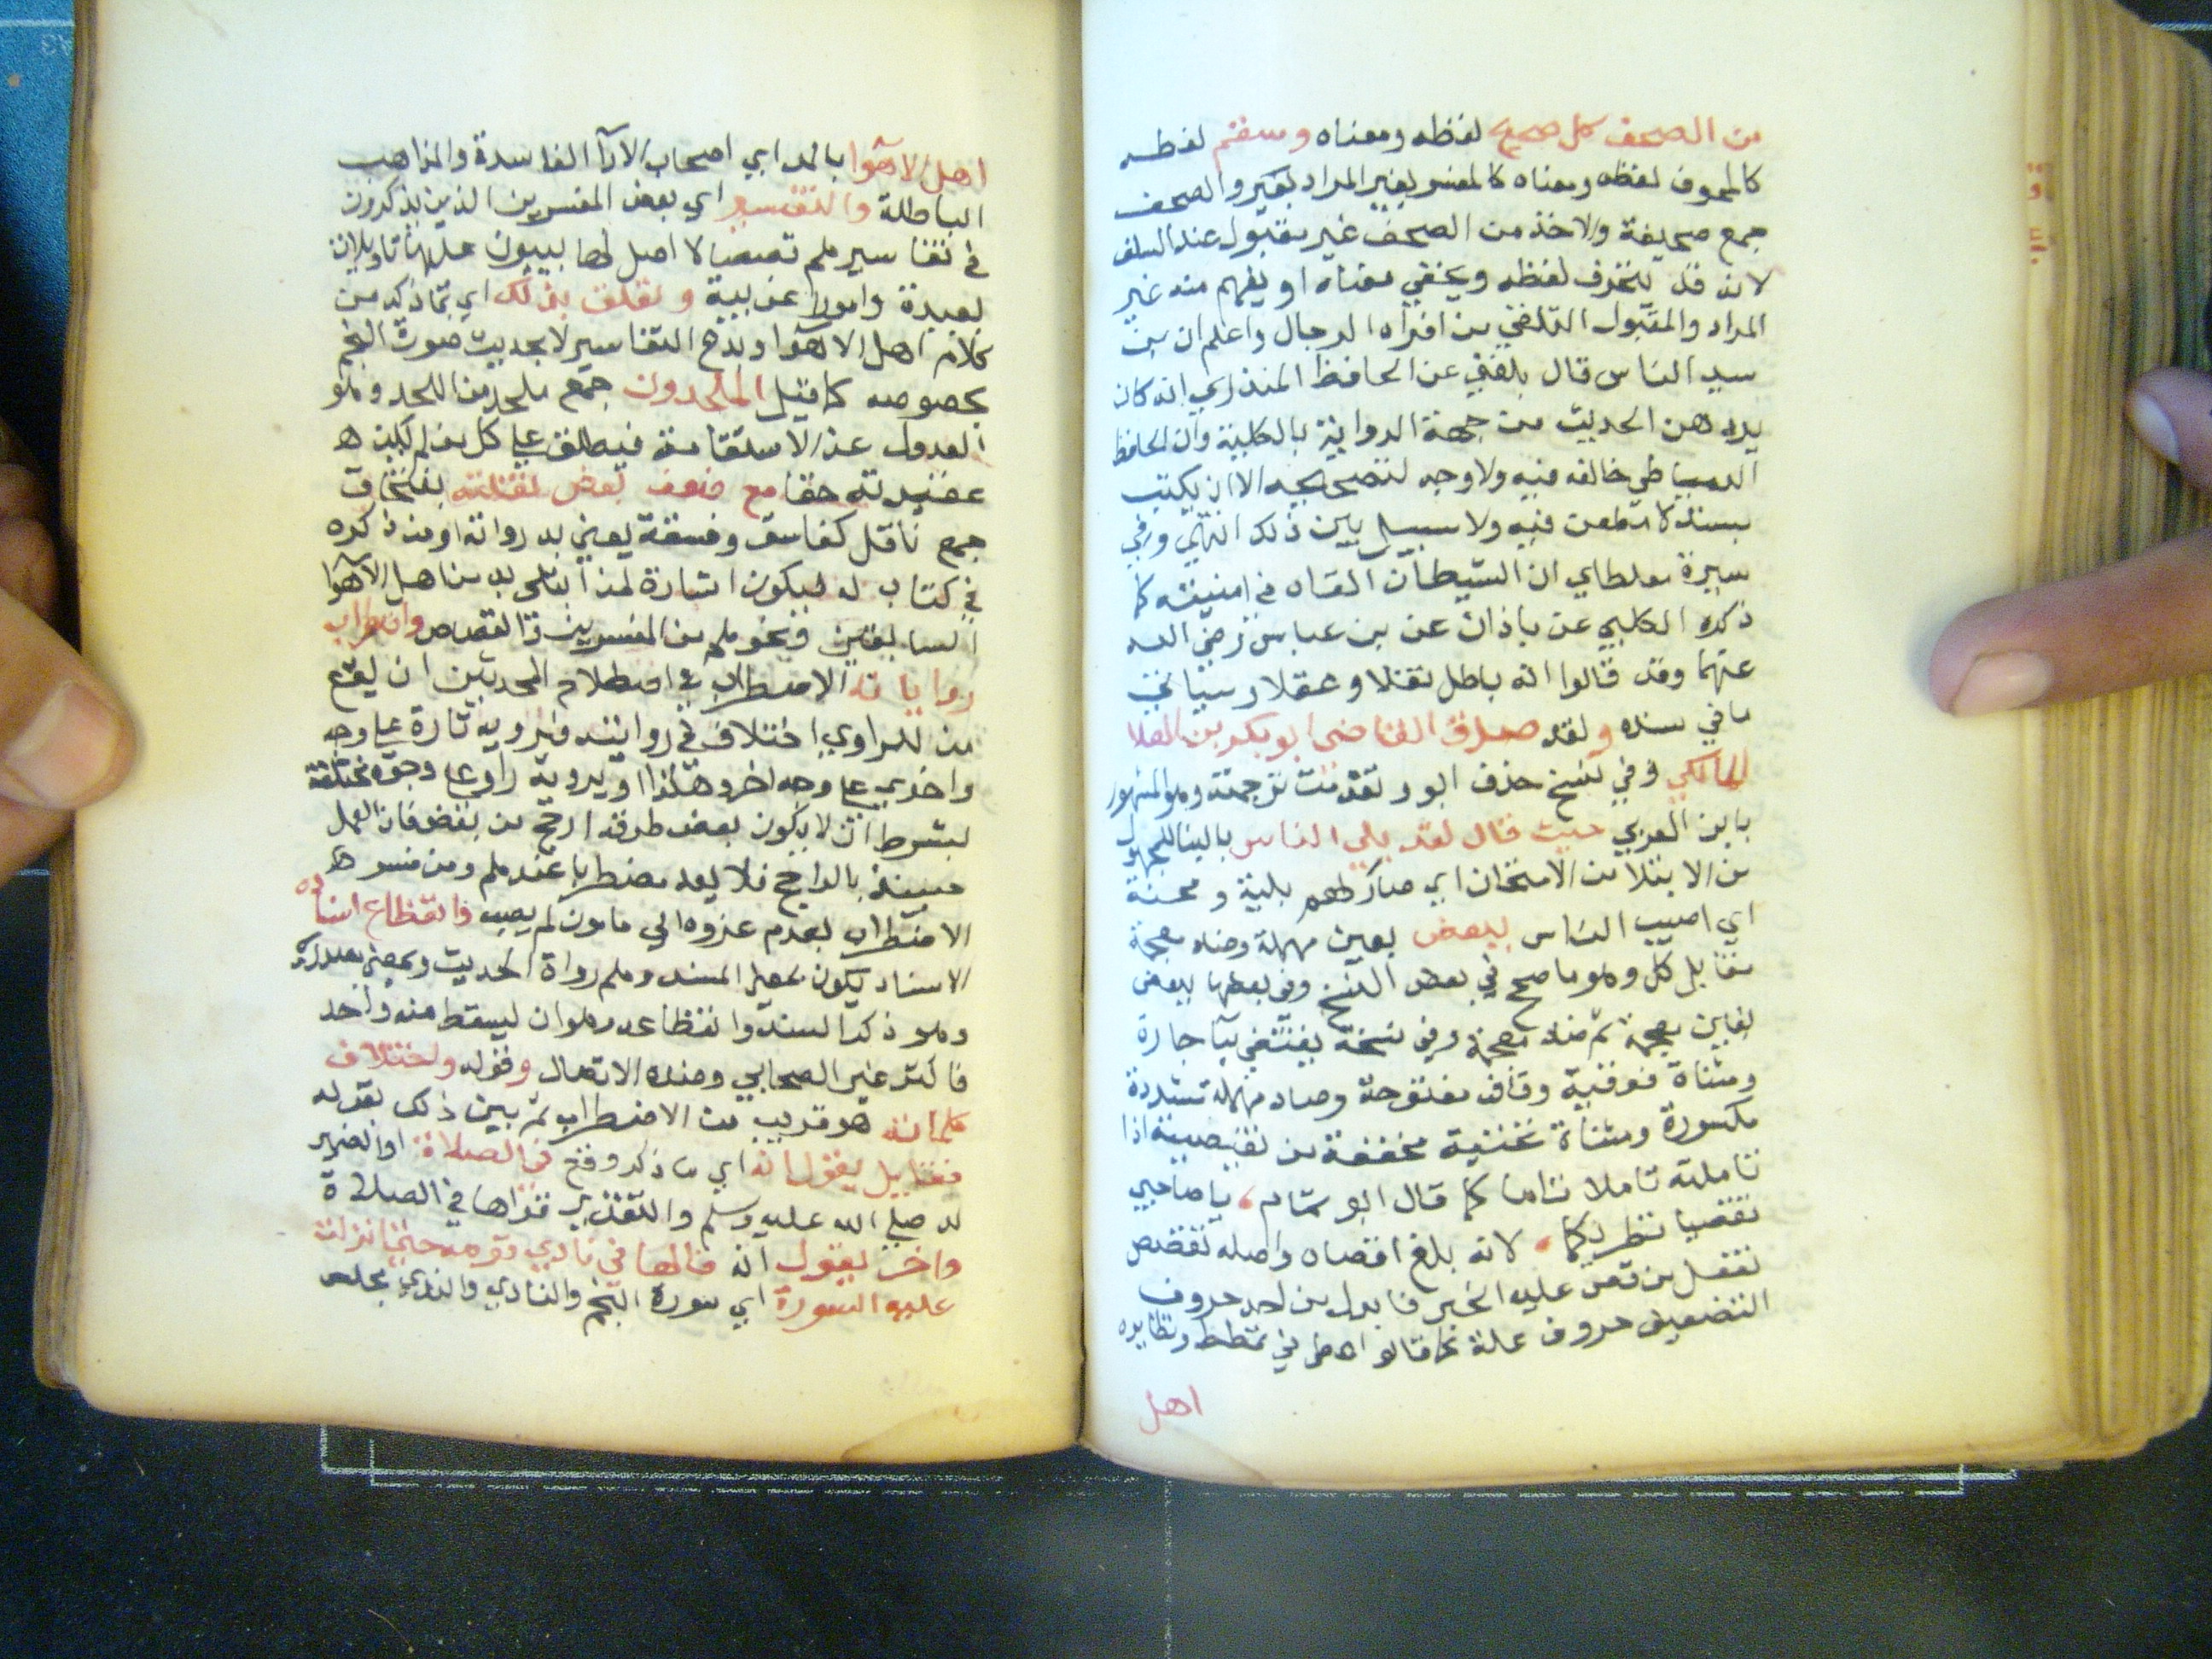 من الصحف كل صحيح لفظه ومعناه وسقيم لفظـه
كالمحرف لفظه ومعناه كالمفسر بغير المراد بغيره والصحف
جمع صحيفة والاخذ من الصحف غير مقبول عند السلف
لانه قد يتحرف لفظه ويخفي معناه او يفهم منه غير
المراد والمقبول التلقي من افواه الرجال واعلم ان بن
سيد الناس قال بلغني عن الحافظ المنذري انه كان
يرد هذا الحديث من جهة الرواية بالكلية وان الحافظ
الدمياطي خالفه فيه ولا وجه لتصحيحه الا ان يكتب
بسند لا مطعن فيه ولا سبيل بين ذلك انتهي وفي
سيرة مغلطاي ان الشيطان القاه في امنيته كما
ذكره الكلبي عن باذان عن بن عباس رضي الله
عنهما وقد قالوا انه باطل نقلا وعقلا وسياتي
ما في سنده ولقد صدق القاضي ابو بكر بن العلا
المالكي وفي نسخ حذف ابو وتقدمت ترجمته وهو المشهور
بابن العربي حيث قال لقد بلي الناس بالبنا للمجهول
من الابتلا من الامتحان اي صار لهم بلية ومحنة
اي اصيب الناس ببعض بعين مهملة وضاد معجمة
مقابل كل وهو ما صح في بعض النسخ وفي بعضها ببغض
بغاين معجمة ثم ضاد معجمة وفي نسخة بتقصي ببا جارة
ومثناة فوقية وقاف مفتوحة وصاد مهملة مشددة
مكسورة ومثناة تحتية مخففة من تقصيته اذا
تاملته تاملا تاما كما قال ابو تمام، يا صاحبي
تقصيا نظريكما، لانه بلغ اقصاه واصله تقصص
تفعل من قص عليه الخبر فابدل من احد حروف
التضعيف حروف علة كما قالوا تمطي في تمطط ونظايره
اهل
اهل الاهوا بالمد اي اصحاب الارآ الفاسدة والمذاهب
الباطلة والتفسير اي بعض المفسرين الذين يذكرون
في تفاسيرهم قصصا لا اصل لها يبنون عليها تاويلات
بعيدة وامورا غريبة وتعلق بذلك اي بما ذكر من
كلام اهل الاهوا وبدع التفاسير لا بحديث صورة النجم
بخصوصه كما قيل الملحدون جمع ملحد من اللحد وهو
العدول عن الاستقامة فيطلق على كل من لم يكن ه
عقيدته حقا مع ضعف بعض نقلته بفتحات
جمع ناقل كفاسق وفسقة يعني به رواته او من ذكره
في كتاب له فيكون اشارة لمن ابتلي به من اهل الاهوا
السابقين ونحوهم من المفسرين ذا القصص واضطراب
رواياته الاضطراب في اصطلاح المحدثين ان يقع
من للراوي اختلاف في روايته فيرويه تارة على وجه
واخري على وجه اخر وهكذا او يرويه راو على وجوه مختلفة
بشرط ان لا يكون بعض طرقه ارجح من بعض فان العمل
حينئذ بالراجح فلا يعد مضطربا عندهم ومن فسره
الاضطراب بعدم عزوه الي مامون لم يصب وانقطاع اسناده
الاسناد يكون بمعني المسند وهم رواة الحديث وبمعني مصدره
وهو ذكر السند وانقطاعه هو ان يسقط منه واحد
فاكثر غير الصحابي وضده الاتصال وقوله واختلاف
كلماته هو قريب من الاضطراب ثم بين ذلك بقوله
فقايل يقول انه اي ما ذكر وقع في الصلاة او الضمير
له صلي الله عليه وسلم والتقدير قراها في الصلاة
واخر يقول انه قالها في نادي قومه حين انزلت
عليه السورة اي سورة النجم والنادي والندي مجلس